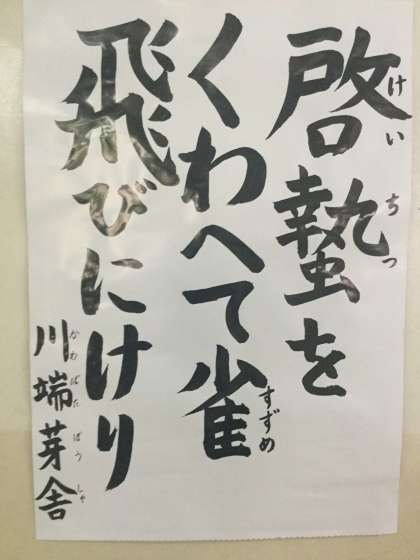 啓蟄を
けいちつ
くわへて雀
すずめ
飛びにけり
川端芽舎
かわばたばうしゃ